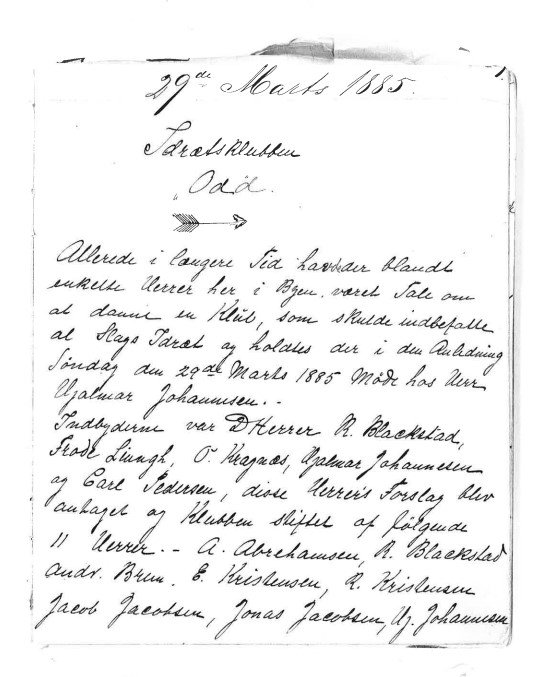 29de Marts 1885.
Idrætsklubben
"Odd".
Allerede i længere Tid havde der blandt
enkelte Herrer her i Byen været Tale om
at danne en Klub, som skulde indbefatte
al Slags Idræt og holdtes der i den Anledning
Søndag den 29de Marts 1885 Møde hos Herr
Hjalmar Johannesen. -
Indbyderne var D'Herrer R. Blackstad,
Frode Liungh, O. Kragnæs, Hjalmar Johannesen
og Carl Pedersen, disse Herrer's Forslag blev
antaget og Klubben stiftet af følgende
11 Herrer. - A. Abrahamsen, R. Blackstad
Andr. Bruu. E. Kristensen, R. Kristensen
Jacob Jacobsen, Jonas Jacobsen, Hj. Johannesen